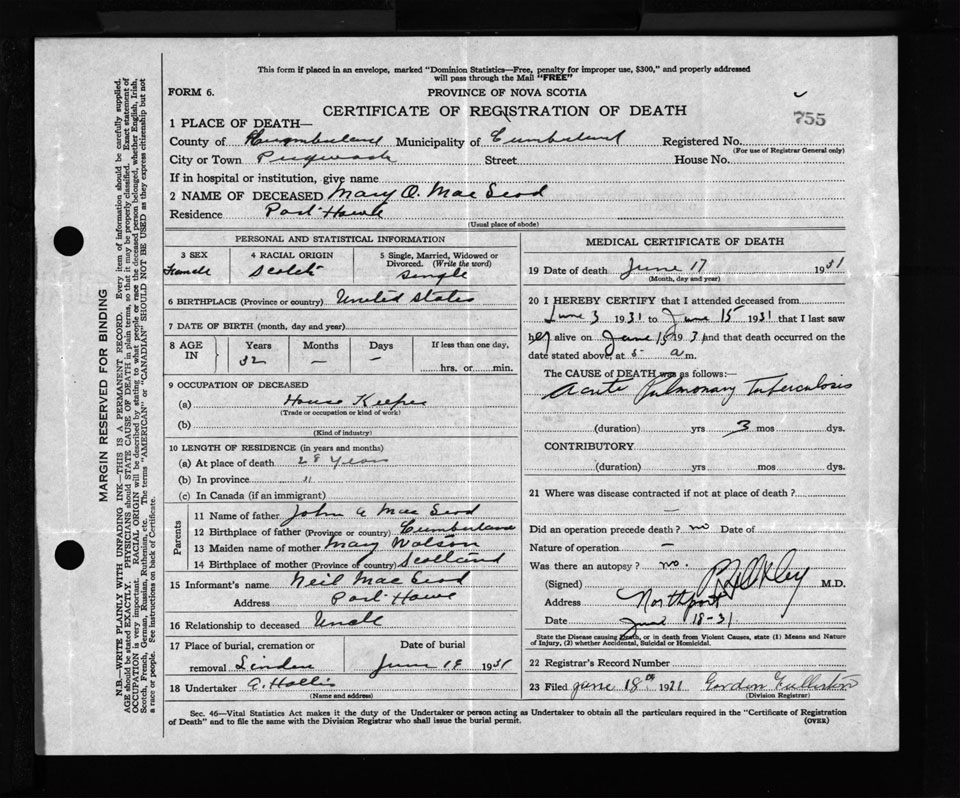 This form if placed in an envelope, marked "Dominion Statistics—Free, penalty for improper use, $300," and properly addressed
will pass through the Mail "FREE"
FORM 6.
PROVINCE OF NOVA SCOTIA
CERTIFICATE OF REGISTRATION OF DEATH
755
1 PLACE OF DEATH—
County of Cumberland Municipality of Cumberland Registered No.
(For use of Registrar General only)
City or Town Pugwash Street House No.
If in hospital or institution, give name
2 NAME OF DECEASED Mary A. Mac Leod
Residence Port Howe
(Usual place of abode)
PERSONAL AND STATISTICAL INFORMATION
3 SEX
Female
4 RACIAL ORIGIN
Scotch
5 Single, Married, Widowed or
Divorced. (Write the word)
Single
6 BIRTHPLACE (Province or country) United States
7 DATE OF BIRTH (month, day and year)
8 AGE IN
Years Months Days If less than one day,
32 — — hrs. or min.
9 OCCUPATION OF DECEASED
(a) House Keeper
(Trade or occupation or kind of work)
(b)
(Kind of industry)
10 LENGTH OF RESIDENCE (in years and months)
(a) At place of death 28 Years
(b) In province "
(c) In Canada (if an immigrant)
Parents
11 Name of father John A Mac Leod
12 Birthplace of father (Province or country) Cumberland
13 Maiden name of mother Mary Watson
14 Birthplace of mother (Province or country) Scotland
15 Informant's name Neil Mac Leod
Address Port Howe
16 Relationship to deceased Uncle
17 Place of burial, cremation or Date of burial
removal Linden June 18 1931
18 Undertaker A. Hollis
(Name and address)
MEDICAL CERTIFICATE OF DEATH
19 Date of death June 17 1931
(Month, day and year)
20 I HEREBY CERTIFY that I attended deceased from
June 3 1931 to June 15 1931 that I last saw
her alive on June 15 1931 and that death occurred on the
date stated above, at 5 a m.
The CAUSE of DEATH was as follows:—
Acute Pulmonary Tuberculosis
(duration) yrs 3 mos dys.
CONTRIBUTORY
(duration) yrs mos dys.
21 Where was disease contracted if not at place of death ?
—
Did an operation precede death ? no Date of
Nature of operation —
Was there an autopsy ? no.
(Signed) M.D.
Address Northport
Date June 18-31
State the Disease causing Death, or in death from Violent Causes, state (1) Means and Nature
of Injury, (2) whether Accidental, Suicidal or Homicidal.
22 Registrar's Record Number
23 Filed June 18th 1931 Gordon Fullerton
(Division Registrar)
Sec. 46—Vital Statistics Act makes it the duty of the Undertaker or person acting as Undertaker to obtain all the particulars required in the "Certificate of Registration
of Death" and to file the same with the Division Registrar who shall issue the burial permit.
(OVER)
MARGIN RESERVED FOR BINDING
N.B.—WRITE PLAINLY WITH UNFADING INK—THIS IS A PERMANENT RECORD. Every item of information should be carefully supplied.
AGE should be stated EXACTLY. PHYSICIANS should STATE CAUSE OF DEATH in plain terms, so that it may be properly classified. Exact statement of
OCCUPATION is very important. RACIAL ORIGIN will be described by stating to what people or race the deceased person belonged, whether English, Irish,
Scotch, French, German, Russian, Ruthenian, etc. The terms "AMERICAN" or "CANADIAN" SHOULD NOT BE USED as they express citizenship but not
a race or people. See instructions on back of Certificate.